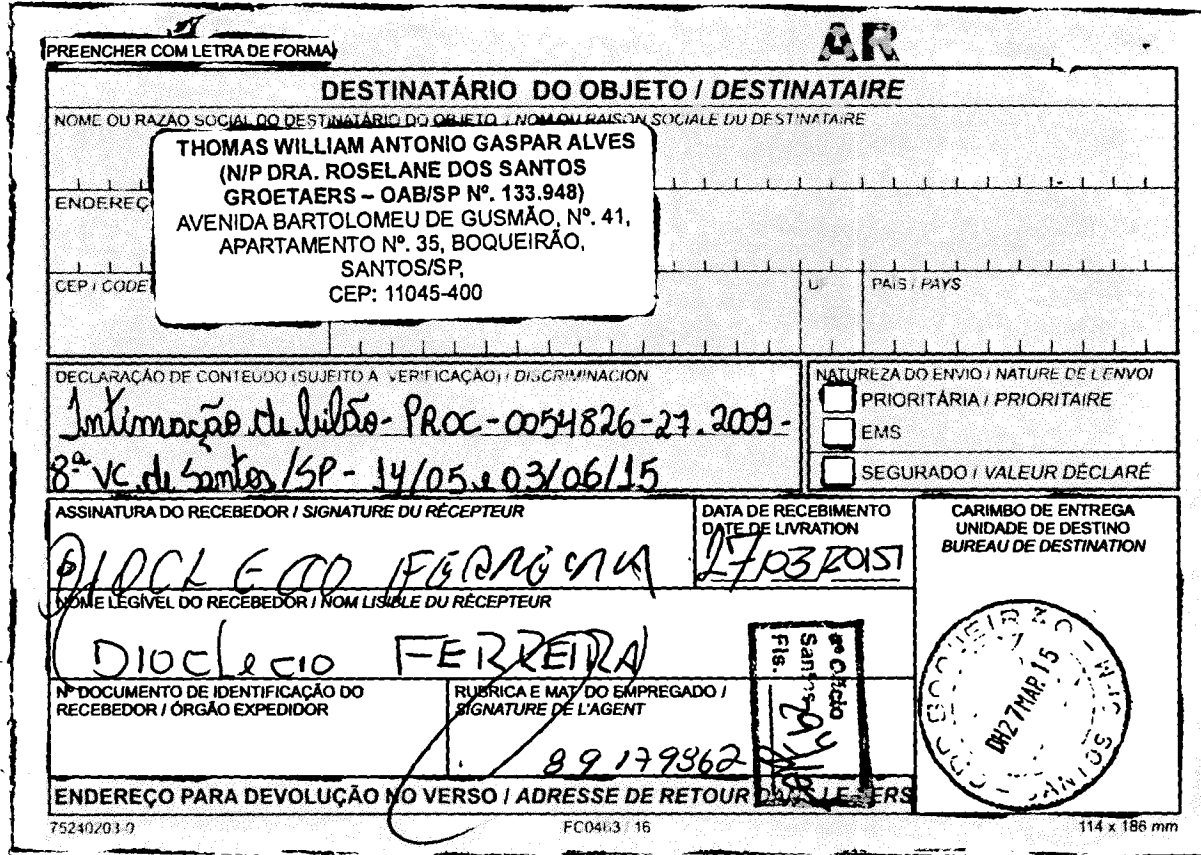 PREENCHER COM LETRA DE FORMA
AR
DESTINATÁRIO DO OBJETO / DESTINATAIRE
NOME OU RAZÃO SOCIAL DO DESTINATÁRIO DO OBJETO / NOM OU RAISON SOCIALE DU DESTINATAIRE
THOMAS WILLIAM ANTONIO GASPAR ALVES
(N/P DRA. ROSELANE DOS SANTOS
GROETAERS – OAB/SP Nº. 133.948)
ENDEREÇO
AVENIDA BARTOLOMEU DE GUSMÃO, Nº. 41,
APARTAMENTO Nº. 35, BOQUEIRÃO,
SANTOS/SP,
CEP: 11045-400
CEP / CODE
UF
PAÍS / PAYS
DECLARAÇÃO DE CONTEÚDO (SUJEITO À VERIFICAÇÃO) / DISCRIMINACION
Intimação de lilão - PROC - 0054826-27.2009 -
8ª VC de Santos/SP - 14/05 e 03/06/15
NATUREZA DO ENVIO / NATURE DE L'ENVOI
PRIORITÁRIA / PRIORITAIRE
EMS
SEGURADO / VALEUR DÉCLARÉ
ASSINATURA DO RECEBEDOR / SIGNATURE DU RÉCEPTEUR
DIOCLECIO FERREIRA
DATA DE RECEBIMENTO
DATE DE LIVRATION
27/03/2015
CARIMBO DE ENTREGA
UNIDADE DE DESTINO
BUREAU DE DESTINATION
NOME LEGÍVEL DO RECEBEDOR / NOM LISIBLE DU RÉCEPTEUR
DIOCLECIO FERREIRA
Nº DOCUMENTO DE IDENTIFICAÇÃO DO
RECEBEDOR / ÓRGÃO EXPEDIDOR
RUBRICA E MAT. DO EMPREGADO /
SIGNATURE DE L'AGENT
89179362
8º Ofício
Santos
Fls.
BOQUEIRÃO
27 MAR 15
ENDEREÇO PARA DEVOLUÇÃO NO VERSO / ADRESSE DE RETOUR DANS LE VERS
75240203-0
FC0463 / 16
114 x 186 mm